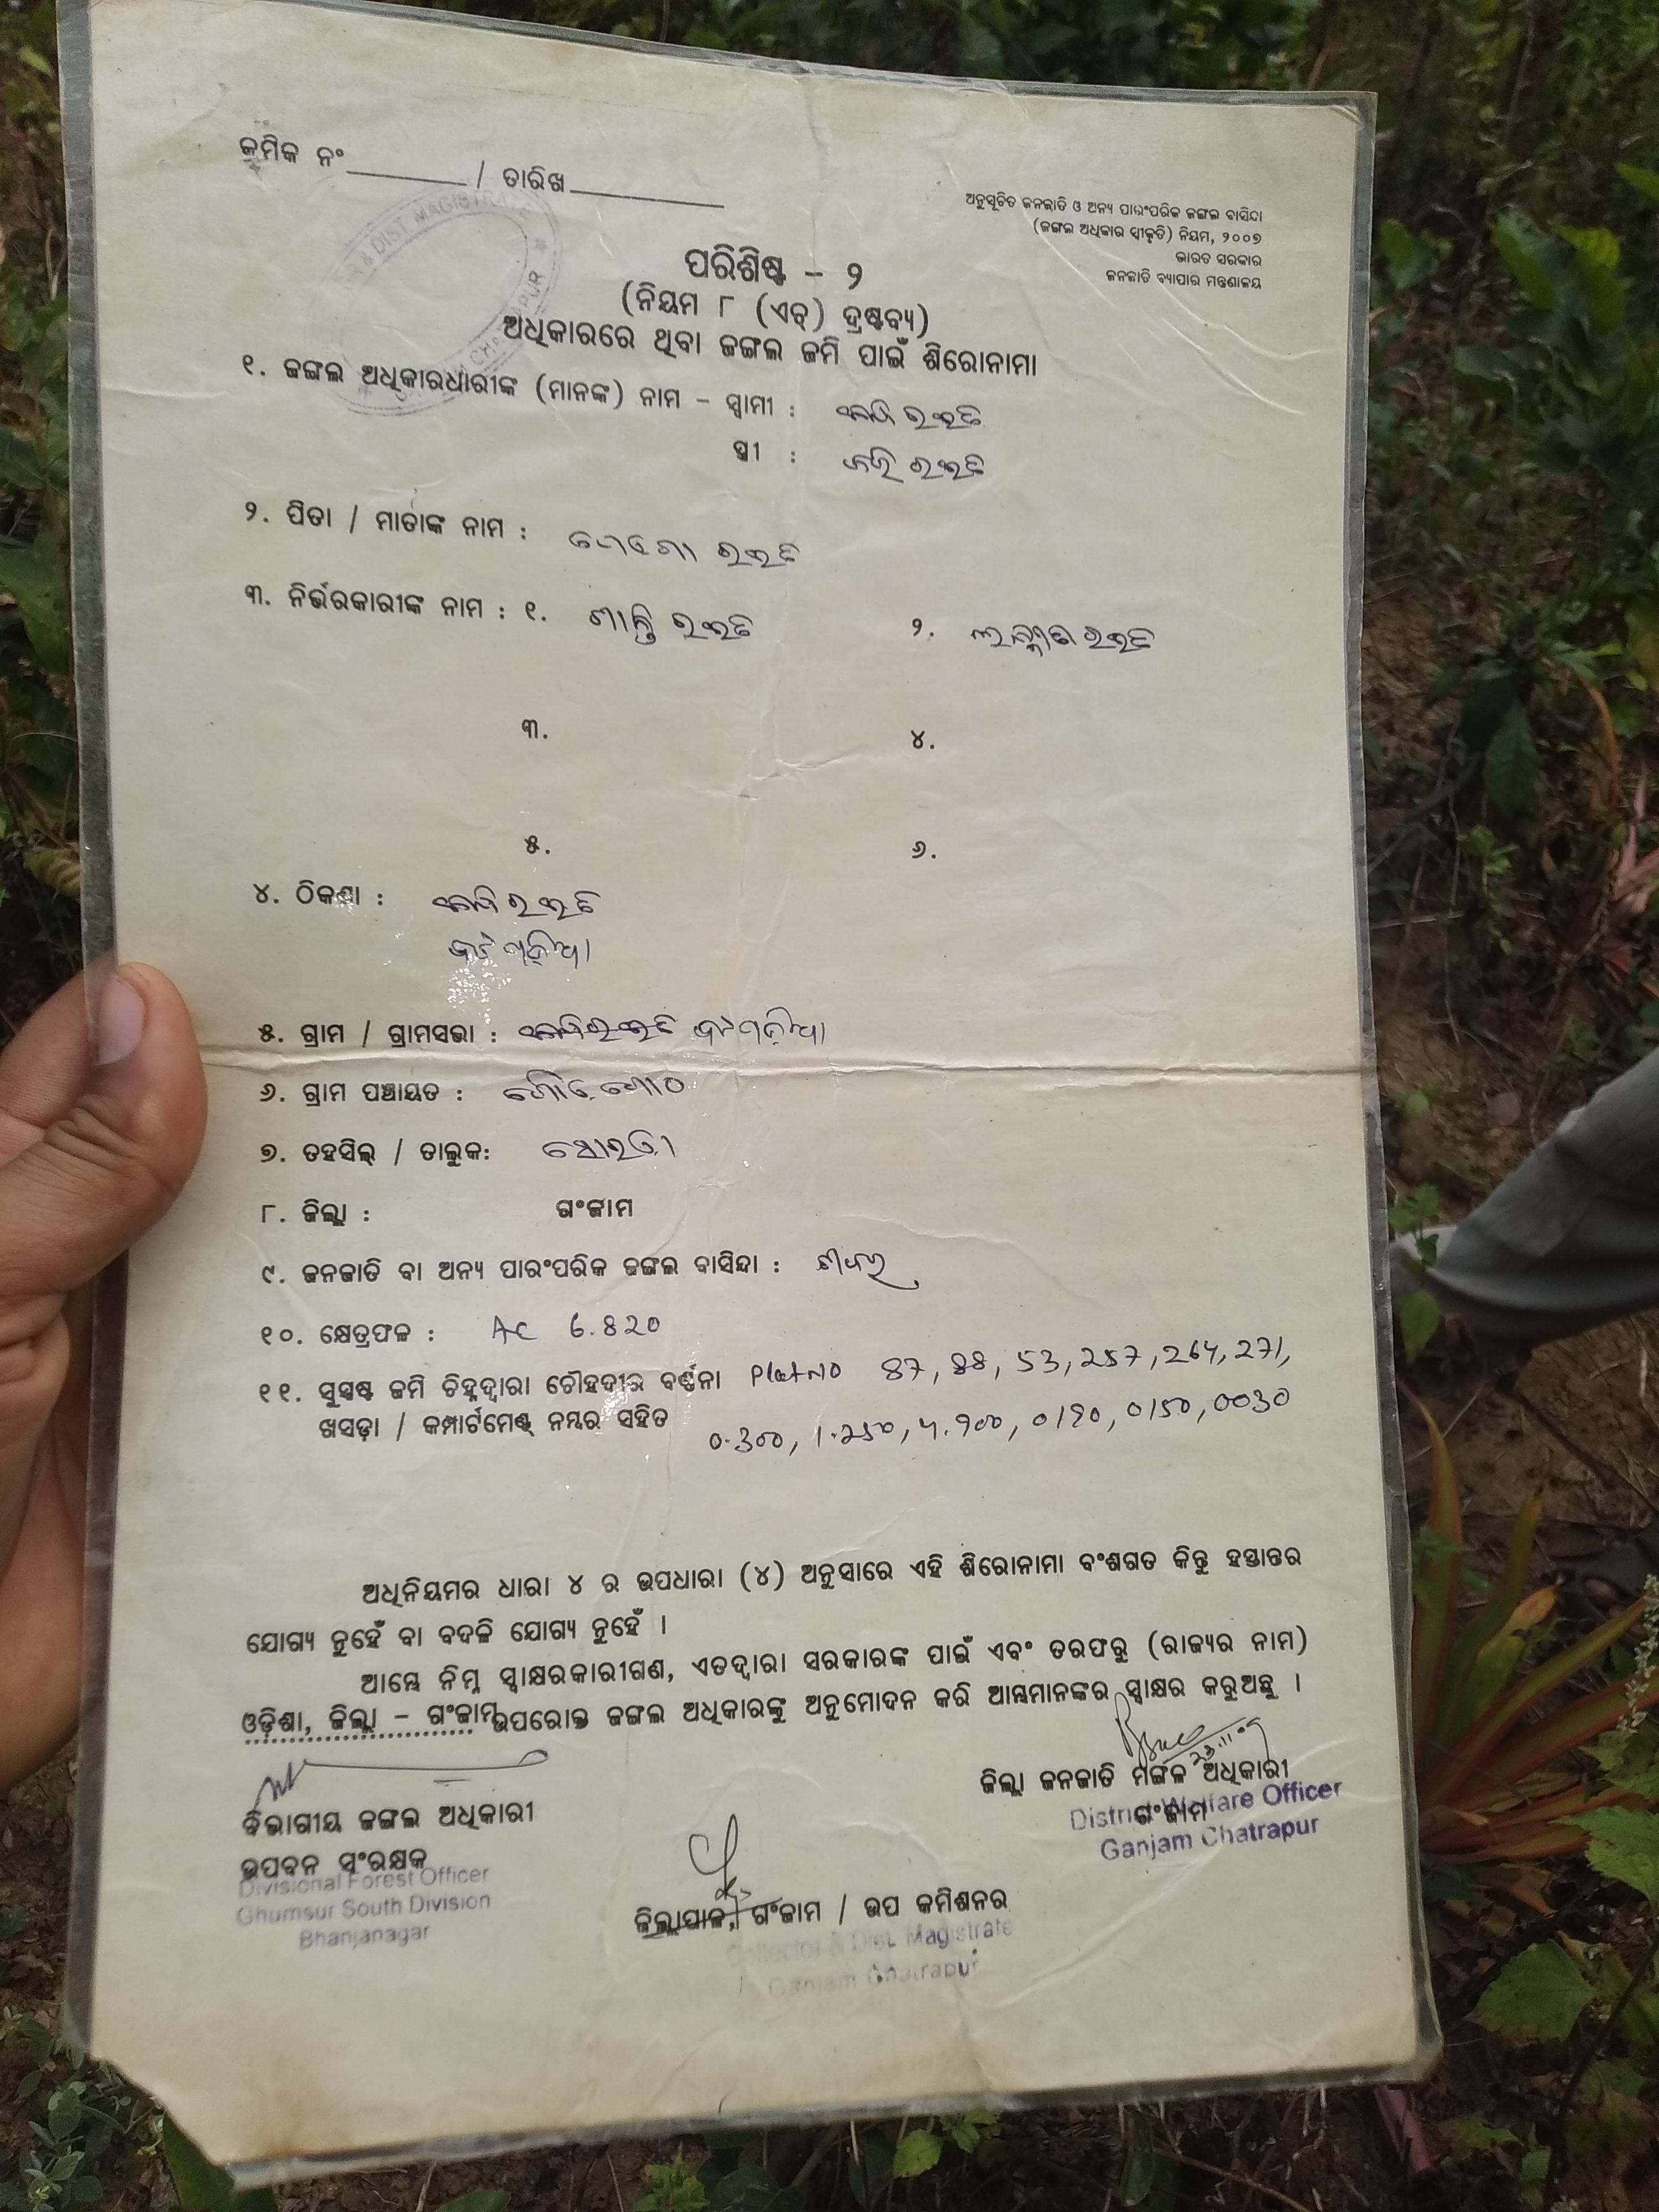 କ୍ରମିକ ନଂ / ତାରିଖ
ଅନୁସୂଚିତ ଜନଜାତି ଓ ଅନ୍ୟ ପାରଂପରିକ ଜଙ୍ଗଲ ବାସିନ୍ଦା
(ଜଙ୍ଗଲ ଅଧିକାର ସ୍ୱୀକୃତି) ନିୟମ, ୨୦୦୭
ଭାରତ ସରକାର
ଜନଜାତି ବ୍ୟାପାର ମନ୍ତ୍ରଣାଳୟ
DIST MAGISTRATE
ପରିଶିଷ୍ଟ – ୨
(ନିୟମ ୮ (ଏଚ୍) ଦ୍ରଷ୍ଟବ୍ୟ)
ଅଧିକାରରେ ଥିବା ଜଙ୍ଗଲ ଜମି ପାଇଁ ଶିରୋନାମା
୧. ଜଙ୍ଗଲ ଅଧିକାରଧାରୀଙ୍କ (ମାନଙ୍କ) ନାମ – ସ୍ୱାମୀ :
ସ୍ତ୍ରୀ :
୨. ପିତା / ମାତାଙ୍କ ନାମ :
୩. ନିର୍ଭରକାରୀଙ୍କ ନାମ : ୧. ଶାନ୍ତି ୨.
୩. ୪.
୫. ୬.
୪. ଠିକଣା :
୫. ଗ୍ରାମ / ଗ୍ରାମସଭା :
୬. ଗ୍ରାମ ପଞ୍ଚାୟତ :
୭. ତହସିଲ୍ / ତାଲୁକ: ସୋରଡ଼ା
୮. ଜିଲ୍ଲା : ଗଂଜାମ
୯. ଜନଜାତି ବା ଅନ୍ୟ ପାରଂପରିକ ଜଙ୍ଗଲ ବାସିନ୍ଦା : ଶବର
୧୦. କ୍ଷେତ୍ରଫଳ : AC 6.820
୧୧. ସୁସ୍ପଷ୍ଟ ଜମି ଚିହ୍ନଦ୍ୱାରା ଚୌହଦୀର ବର୍ଣ୍ଣନା Plot NO 87, 88, 53, 257, 264, 271,
ଖସଡ଼ା / କମ୍ପାର୍ଟମେଣ୍ଟ୍ ନମ୍ବର ସହିତ 0.300, 1.250, 4.900, 0190, 0150, 0030
ଅଧିନିୟମର ଧାରା ୪ ର ଉପଧାରା (୪) ଅନୁସାରେ ଏହି ଶିରୋନାମା ବଂଶଗତ କିନ୍ତୁ ହସ୍ତାନ୍ତର
ଯୋଗ୍ୟ ନୁହେଁ ବା ବଦଳି ଯୋଗ୍ୟ ନୁହେଁ ।
ଆମ୍ଭେ ନିମ୍ନ ସ୍ୱାକ୍ଷରକାରୀଗଣ, ଏତଦ୍ୱାରା ସରକାରଙ୍କ ପାଇଁ ଏବଂ ତରଫରୁ (ରାଜ୍ୟର ନାମ)
ଓଡ଼ିଶା, ଜିଲ୍ଲା – ଗଂଜାମ ଉପରୋକ୍ତ ଜଙ୍ଗଲ ଅଧିକାରଙ୍କୁ ଅନୁମୋଦନ କରି ଆମ୍ଭମାନଙ୍କର ସ୍ୱାକ୍ଷର କରୁଅଛୁ ।
ଜିଲ୍ଲା ଜନଜାତି ମଙ୍ଗଳ ଅଧିକାରୀ
ଗଂଜାମ
District Welfare Officer
Ganjam Chatrapur
ବିଭାଗୀୟ ଜଙ୍ଗଲ ଅଧିକାରୀ
ଉପବନ ସଂରକ୍ଷକ
Divisional Forest Officer
Ghumsur South Division
Bhanjanagar
ଜିଲ୍ଲାପାଳ, ଗଂଜାମ / ଉପ କମିଶନର
Collector & Dist. Magistrate
Ganjam Chatrapur